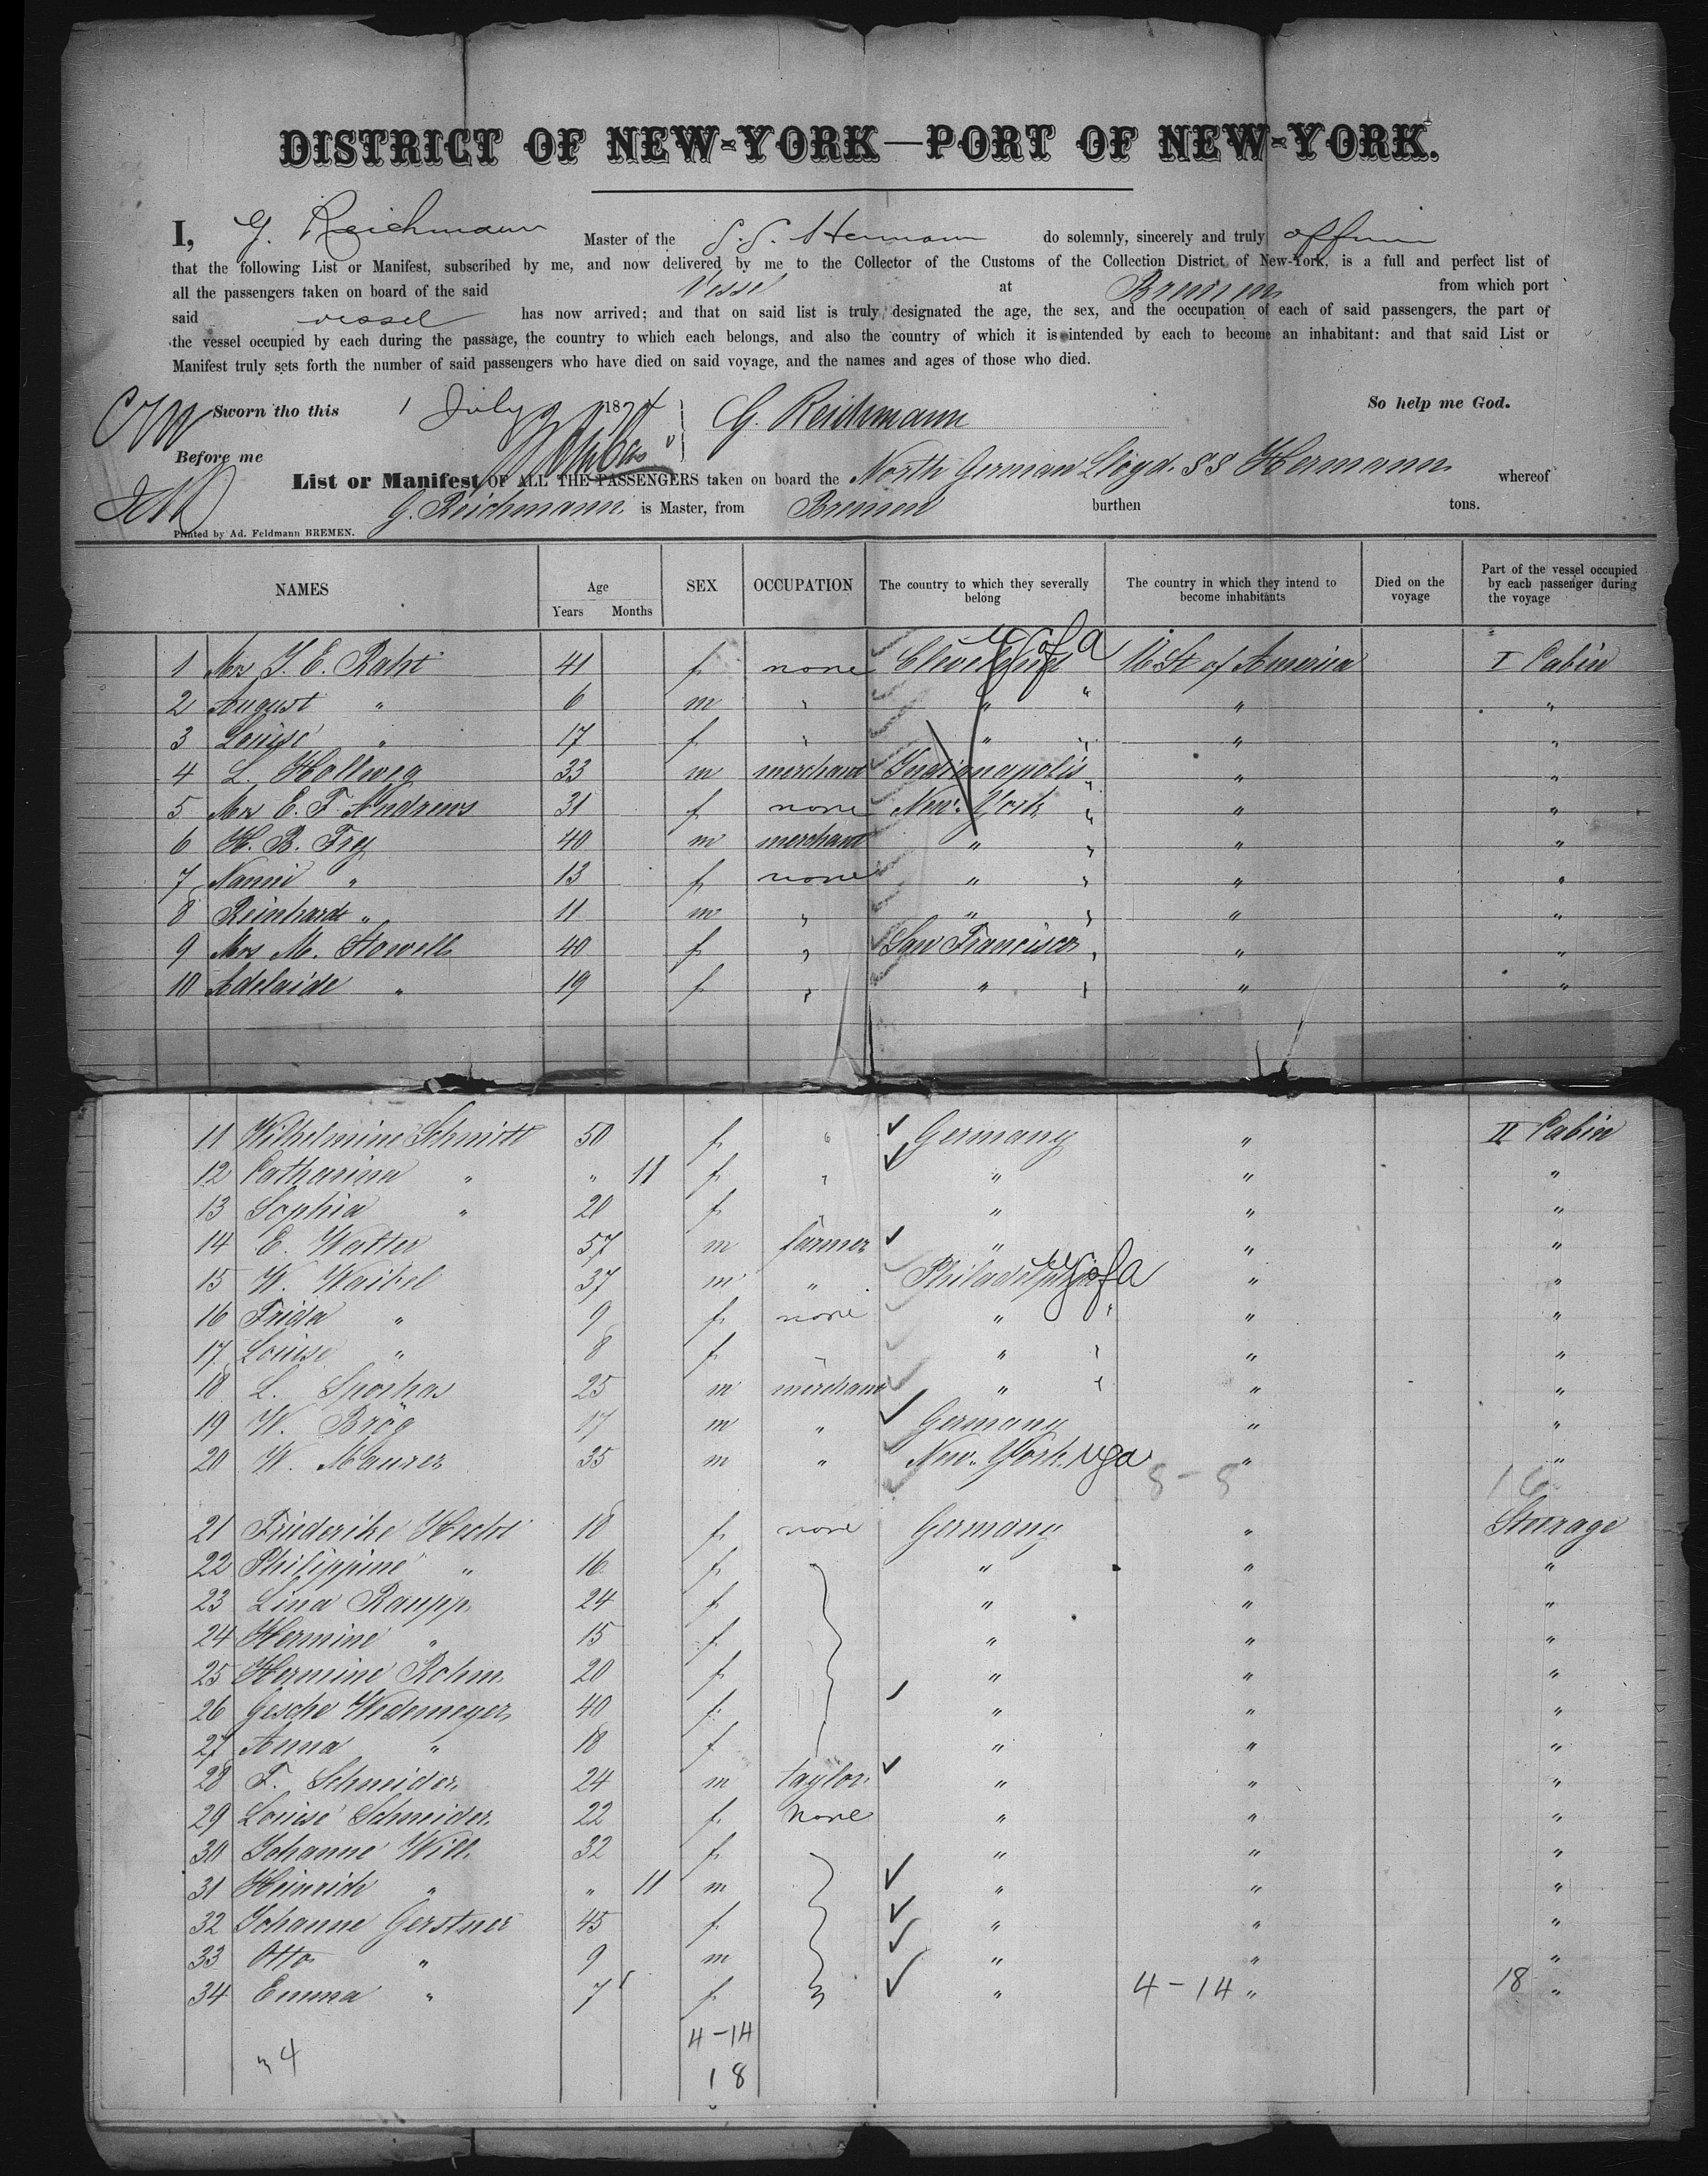 DISTRICT OF NEW-YORK—PORT OF NEW-YORK.
I, G. Reichmann Master of the S.S. Hermann do solemnly, sincerely and truly affirm
that the following List or Manifest, subscribed by me, and now delivered by me to the Collector of the Customs of the Collection District of New-York, is a full and perfect list of
all the passengers taken on board of the said Vessel at Bremen from which port
said vessel has now arrived; and that on said list is truly designated the age, the sex, and the occupation of each of said passengers, the part of
the vessel occupied by each during the passage, the country to which each belongs, and also the country of which it is intended by each to become an inhabitant: and that said List or
Manifest truly sets forth the number of said passengers who have died on said voyage, and the names and ages of those who died.
Sworn tho this 1 July 1874 G. Reichmann So help me God.
Before me
List or Manifest OF ALL THE PASSENGERS taken on board the North German Lloyd. SS Hermann whereof
G. Reichmann is Master, from Bremen burthen tons.
Printed by Ad. Feldmann BREMEN.
NAMES Age Years Months SEX OCCUPATION The country to which they severally belong The country in which they intend to become inhabitants Died on the voyage Part of the vessel occupied by each passenger during the voyage
1 Mrs J. E. Raht 41 f none Cleveland U S of a U St of America I Cabin
2 August " 6 m " " " " "
3 Louise " 17 f " " " " "
4 L. Hollweg 33 m merchant Indianapolis " " "
5 Mrs E. F. Andrews 31 f none New-York " " "
6 H. B. Frey 40 m merchant " " " "
7 Nanni " 13 f none " " " "
8 Reinhard " 11 m " " " " "
9 Mrs M. Stowell 40 f " San Francisco " " "
10 Adelaide " 19 f " " " " "
11 Wilhelmine Schmitt 50 f " Germany " II Cabin
12 Catharina " " 11 f " " " "
13 Sophia " 20 f " " " "
14 E. Walter 57 m farmer " " "
15 W. Waibel 37 m " Philadelphia U S of a " "
16 Frida " 9 f none " " " "
17 Louise " 8 f " " " " "
18 L. 25 m merchant " " " "
19 W. Brög 17 m " Germany " "
20 W. Maurer 35 m " New-York usa " "
5-5 16
21 Friederike Hecht 18 f none Germany " Steerage
22 Philippine " 16 f " " "
23 Lina Raupp 24 f " " "
24 Hermine " 15 f " " "
25 Hermine Rohm 20 f " " "
26 Gesche Wedemeyer 40 f " " "
27 Anna " 18 f " " "
28 F. Schneider 24 m taylor " " "
29 Louise Schneider 22 f none " " "
30 Johanne Will 32 f " " "
31 Heinrich " " 11 m " " "
32 Johanne Gerstner 45 f " " "
33 Otto " 9 m " " "
34 Emma " 7 f " 4-14 " 18 "
4-14
34 18